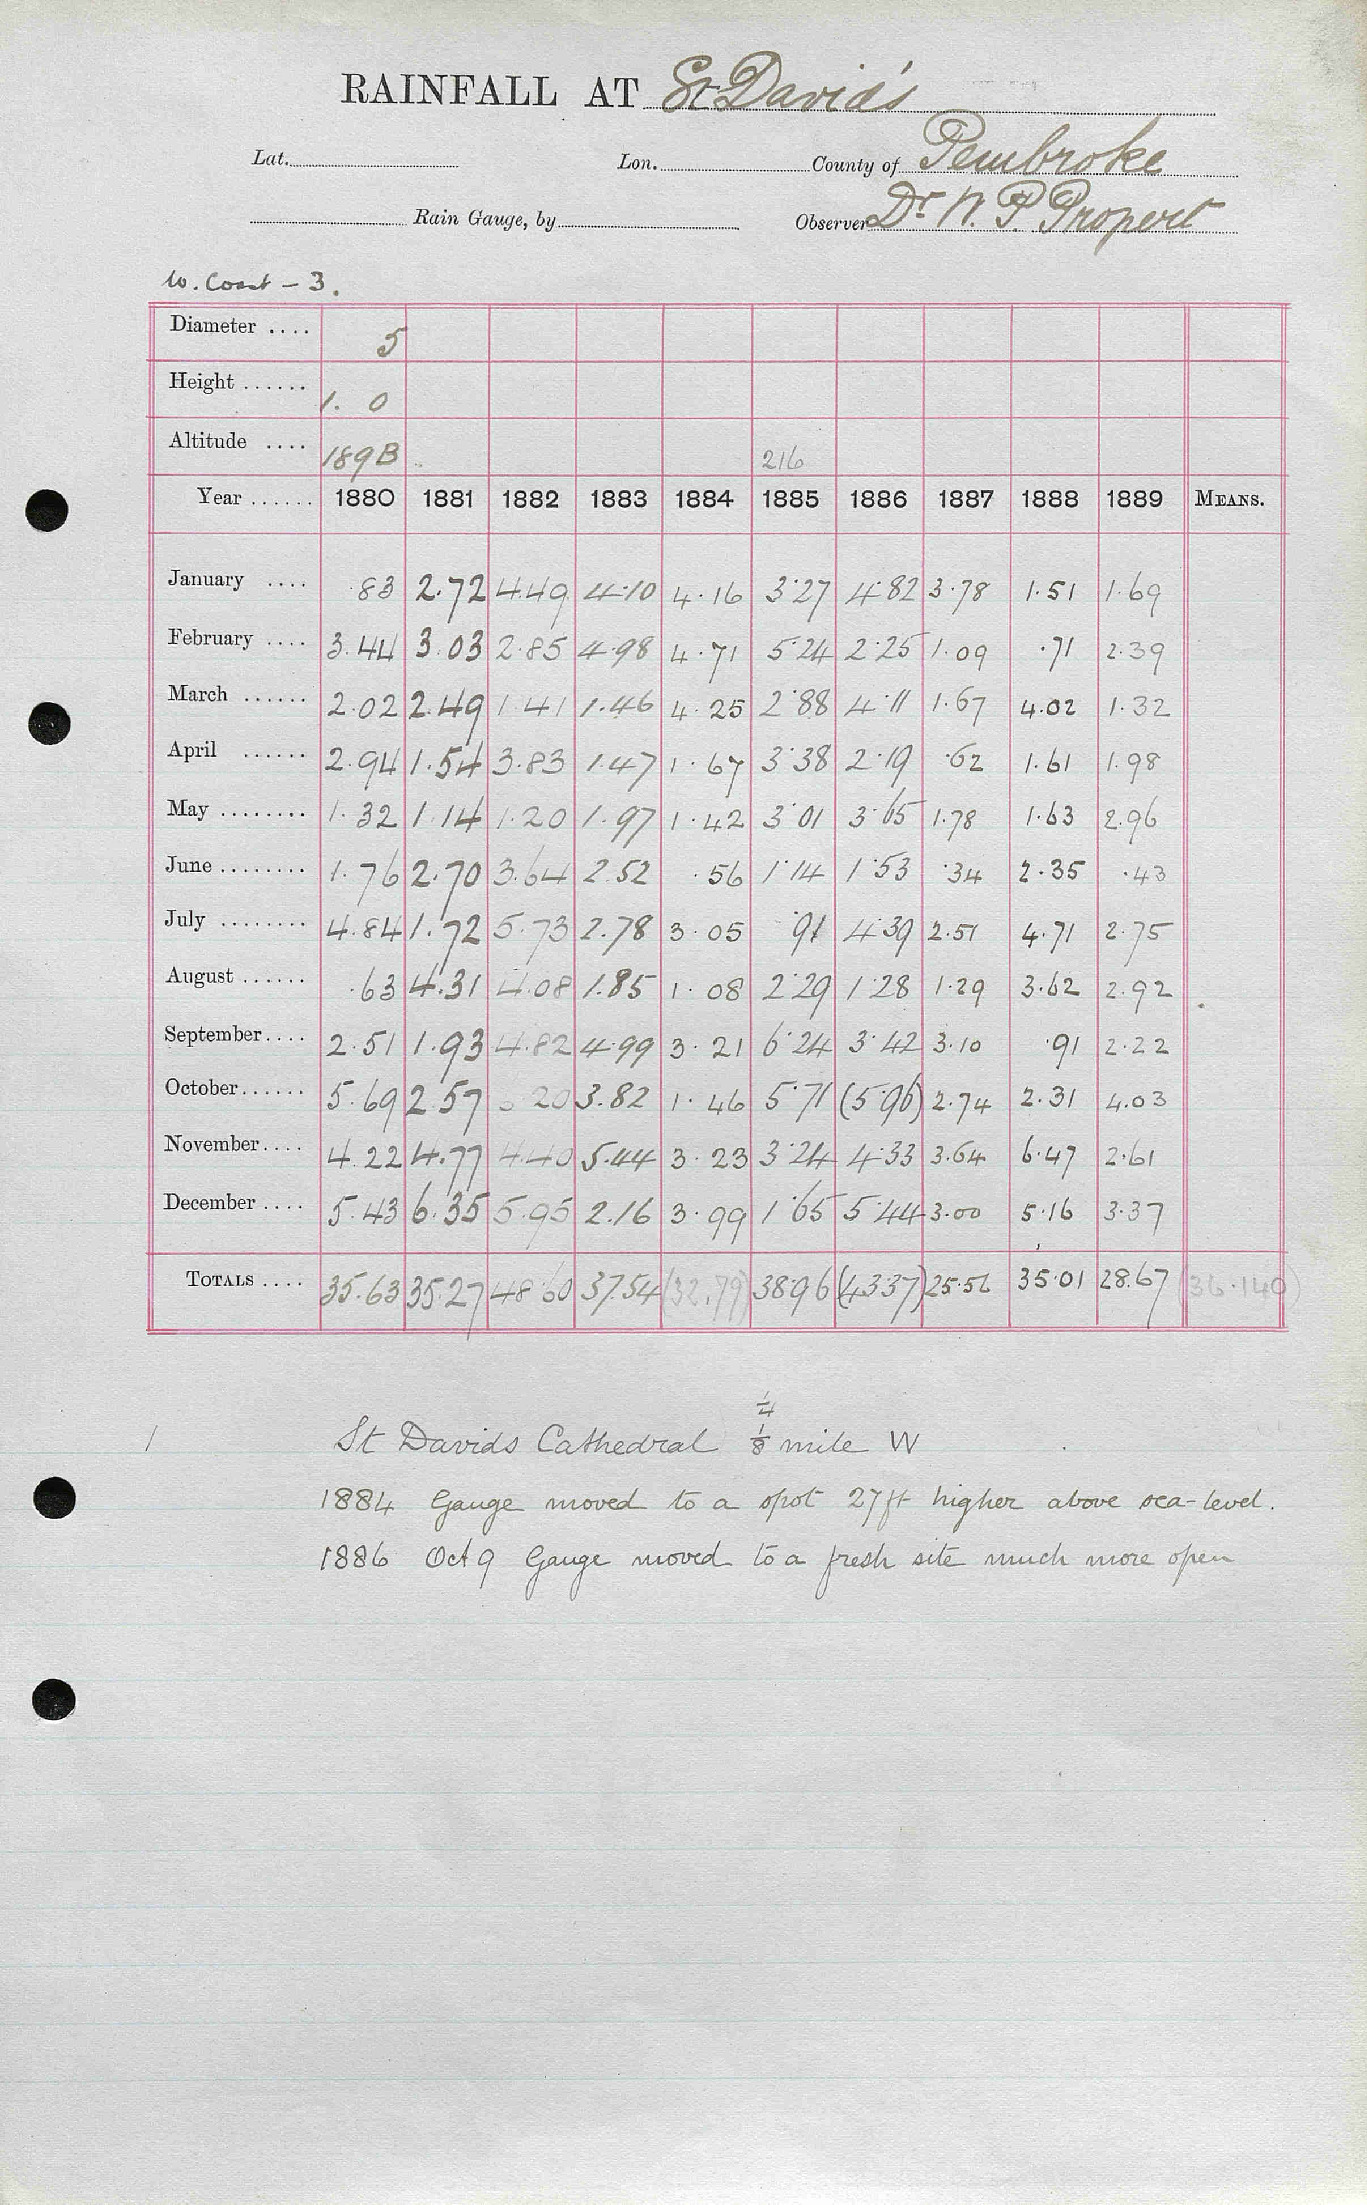 RAINFALL AT St Davids
Lat. Lon. County of Pembroke
Rain Gauge, by Observer Dr W. P. Propert
W. Coast - 3.
Diameter .... 5
Height ...... 1. 0
Altitude .... 189B 216
Year ...... 1880 1881 1882 1883 1884 1885 1886 1887 1888 1889 MEANS.
January .... .83 2.72 4.49 4.10 4.16 3.27 4.82 3.78 1.51 1.69
February .... 3.44 3.03 2.85 4.98 4.71 5.24 2.25 1.09 .71 2.39
March ...... 2.02 2.49 1.41 1.46 4.25 2.88 4.11 1.67 4.02 1.32
April ...... 2.94 1.54 3.83 1.47 1.67 3.38 2.19 .62 1.61 1.98
May ........ 1.32 1.14 1.20 1.97 1.42 3.01 3.65 1.78 1.63 2.96
June ........ 1.76 2.70 3.64 2.52 .56 1.14 1.53 .34 2.35 .43
July ........ 4.84 1.72 5.73 2.78 3.05 .91 4.39 2.51 4.71 2.75
August ...... .63 4.31 4.08 1.85 1.08 2.29 1.28 1.29 3.62 2.92
September.... 2.51 1.93 4.82 4.99 3.21 6.24 3.42 3.10 .91 2.22
October...... 5.69 2.57 6.20 3.82 1.46 5.71 (5.96) 2.74 2.31 4.03
November.... 4.22 4.77 4.40 5.44 3.23 3.24 4.33 3.64 6.47 2.61
December .... 5.43 6.35 5.95 2.16 3.99 1.65 5.44 3.00 5.16 3.37
TOTALS .... 35.63 35.27 48.60 37.54 (32.79) 38.96 (43.37) 25.56 35.01 28.67 (36.140)
1/4
1 St Davids Cathedral 1/8 mile W
1884 Gauge moved to a spot 27ft higher above sea-level.
1886 Oct 9 Gauge moved to a fresh site much more open